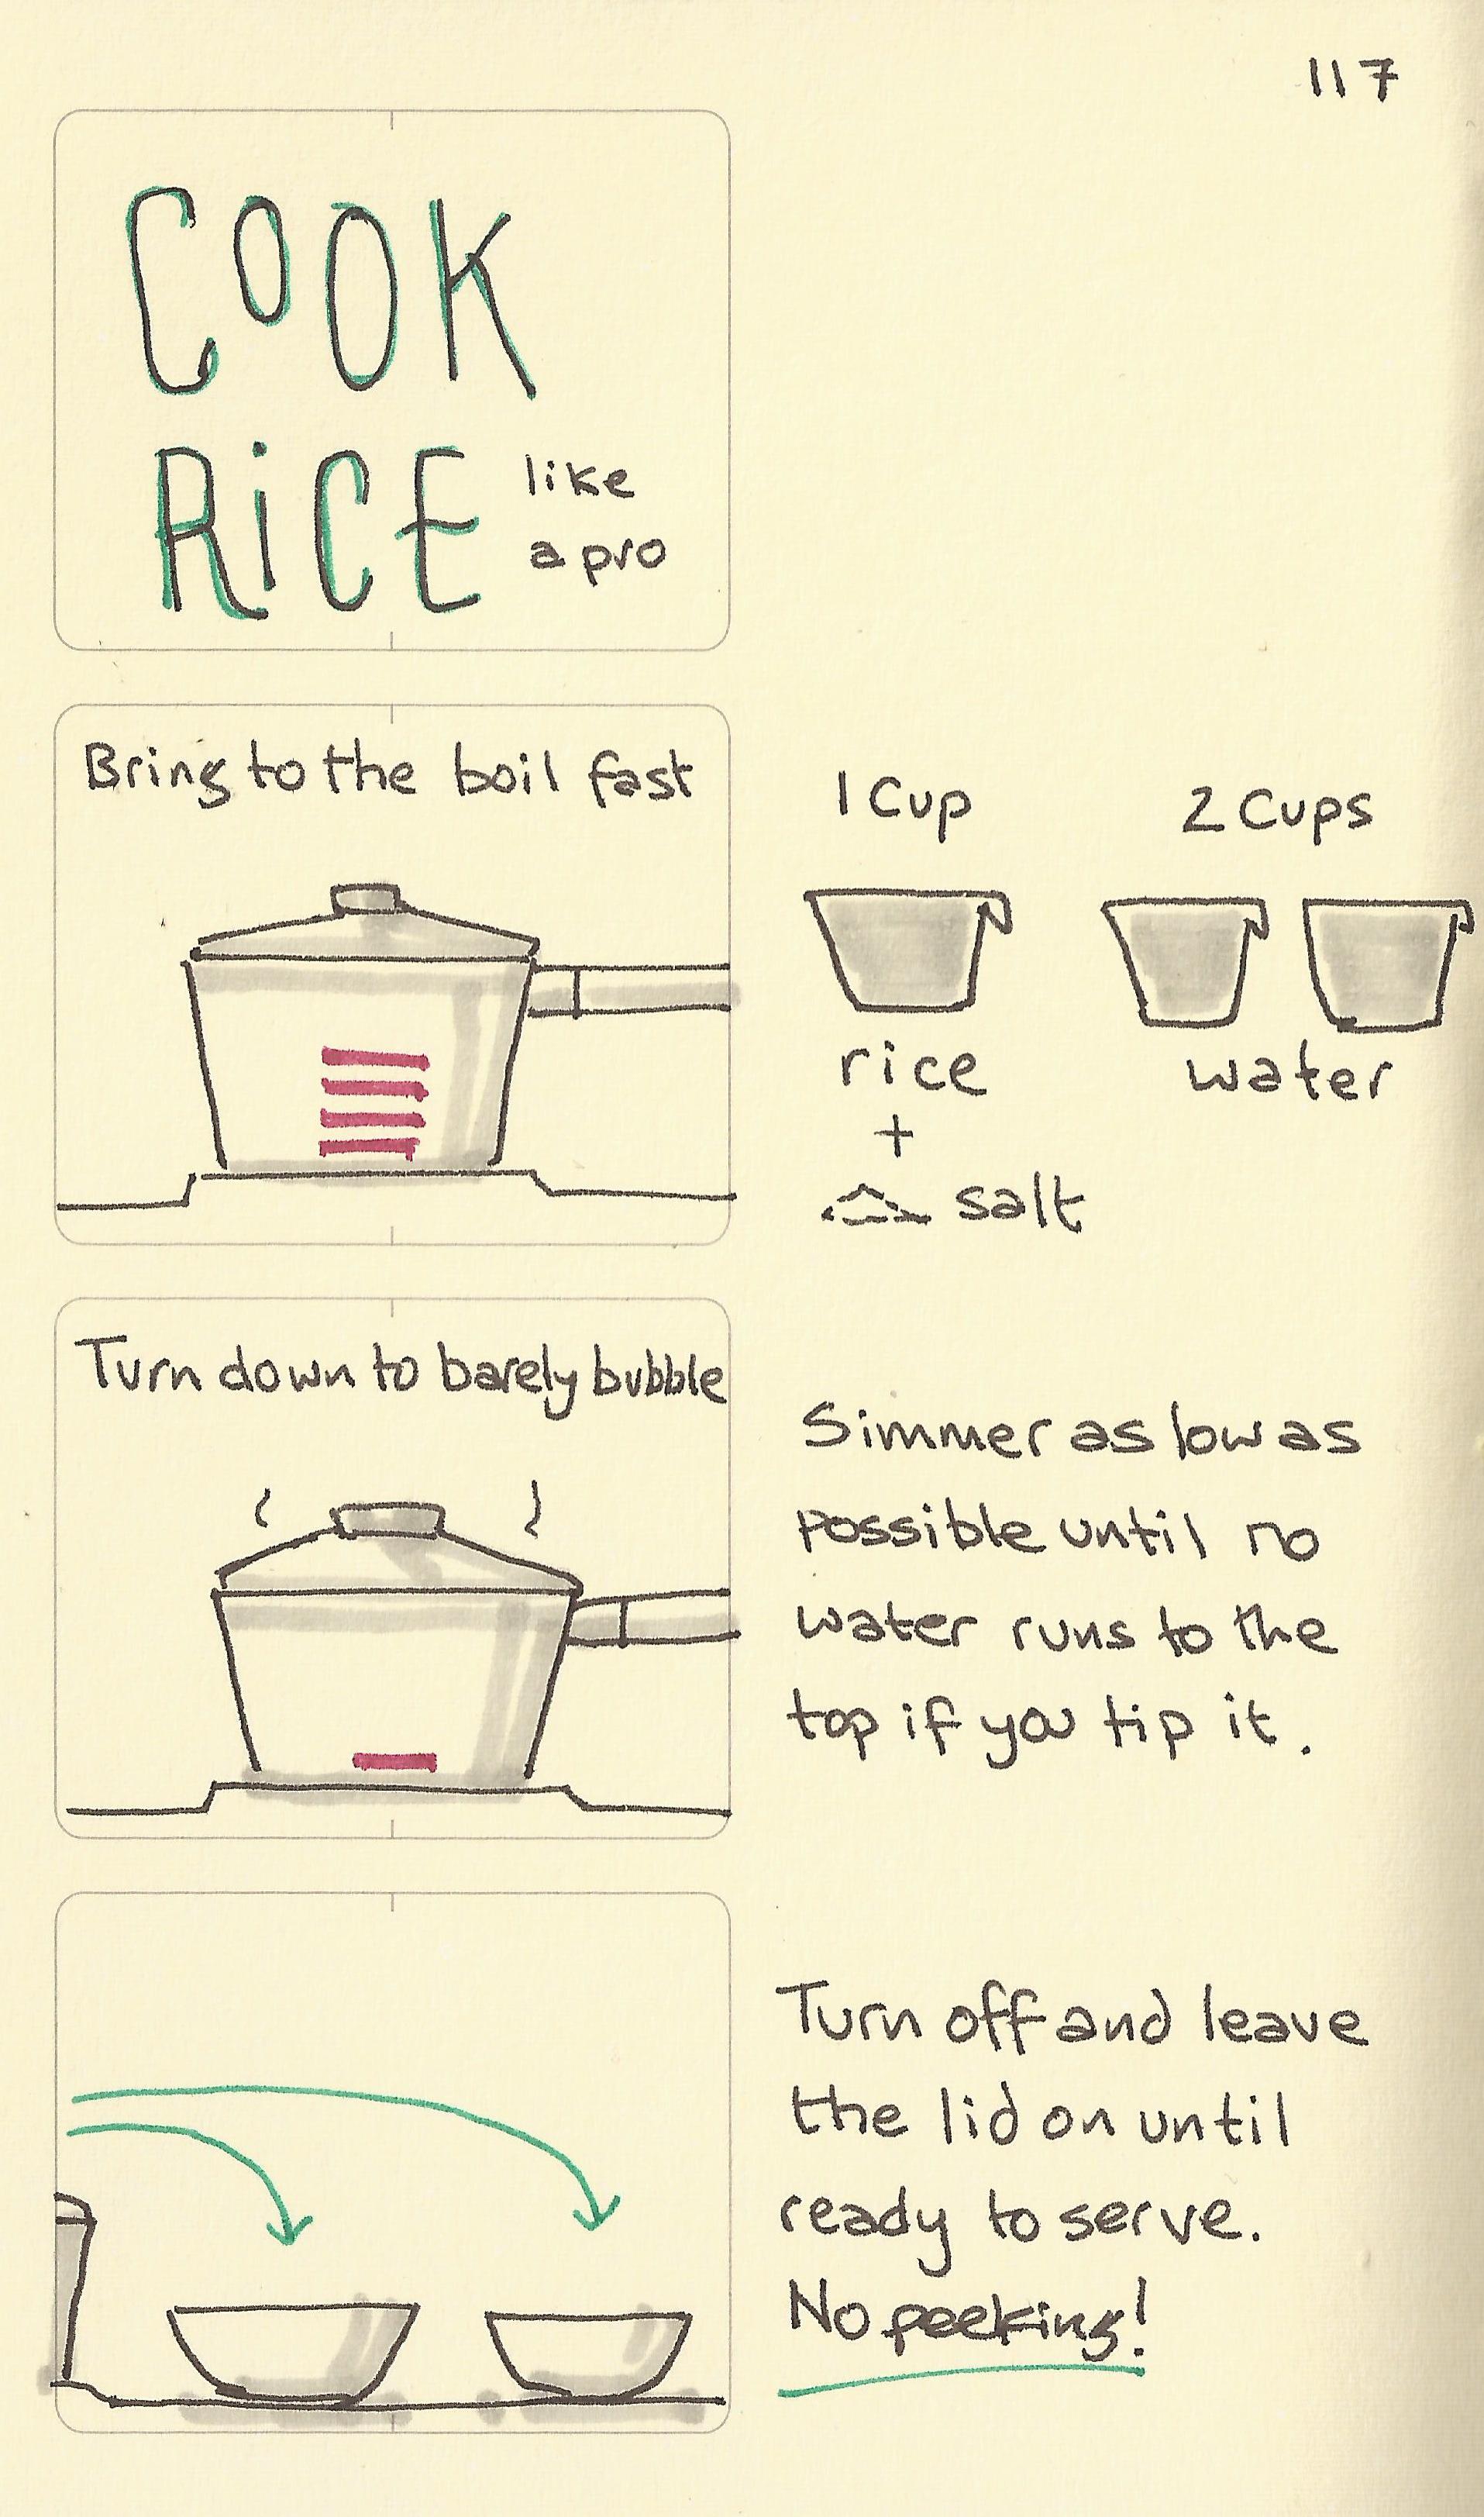 117
COOK
RiCE
like
a pro
Bring to the boil fast
1 Cup
2 Cups
rice
water
+
salt
Turn down to barely bubble
Simmer as low as
possible until no
water runs to the
top if you tip it.
Turn off and leave
the lid on until
ready to serve.
No peeking!